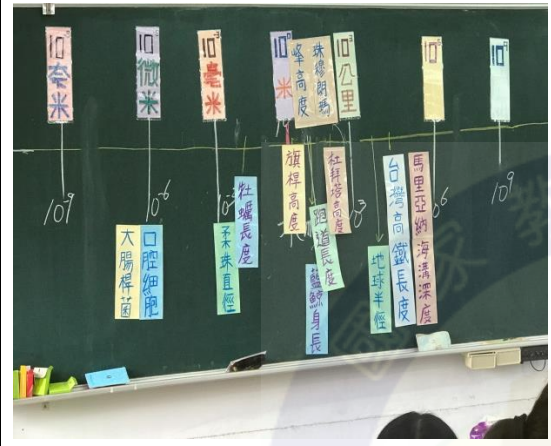 10⁻⁹
奈米
10⁻⁶
微米
10⁻³
毫米
10⁰
米
珠穆朗瑪
峰高度
10³
公里
10⁶
10⁹
10⁻⁹
10⁻⁶
10⁻³
10⁹
大腸桿菌
口腔細胞
柔珠直徑
牡蠣長度
旗桿高度
跑道長度
藍鯨身長
杜拜塔高度
地球半徑
台灣高鐵長度
馬里亞納海溝深度
國家